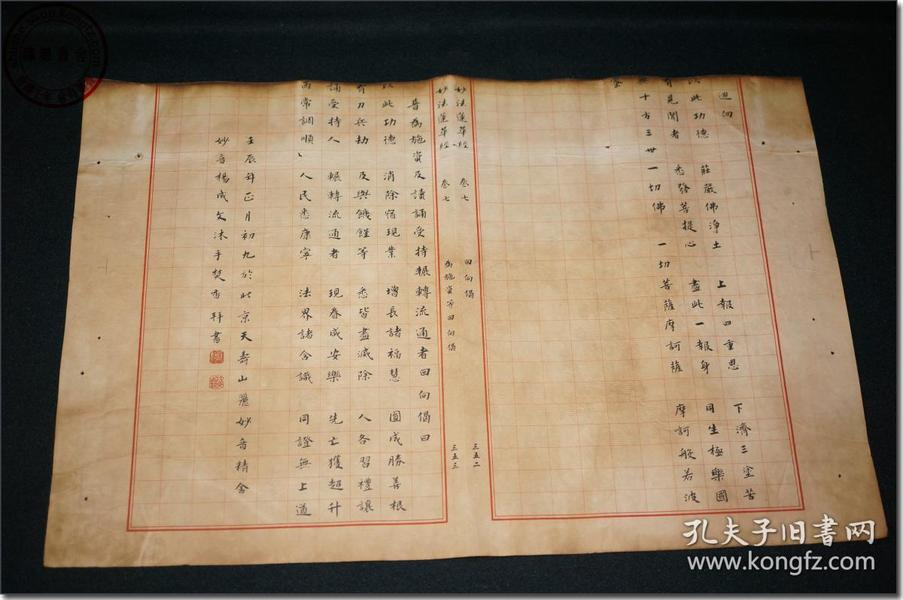 迴向
以此功德 莊嚴佛淨土 上報四重恩 下濟三塗苦
有見聞者 悉發菩提心 盡此一報身 同生極樂國
十方三世一切佛 一切菩薩摩訶薩 摩訶般若波
蜜
妙法蓮華經 卷七 回向偈 三五二
妙法蓮華經 卷七 為施資等回向偈 三五三
普為施資及讀誦受持輾轉流通者回向偈曰
以此功德 消除宿現業 增長諸福慧 圓成勝善根
有刀兵劫 及與饑饉等 悉皆盡滅除 人各習禮讓
誦受持人 輾轉流通者 現眷咸安樂 先亡獲超升
雨常調順 人民悉康寧 法界諸含識 同證無上道
壬辰年正月初九於北京天壽山麓妙音精舍
妙音楊成文沐手焚香拜書
孔夫子旧书网
www.kongfz.com